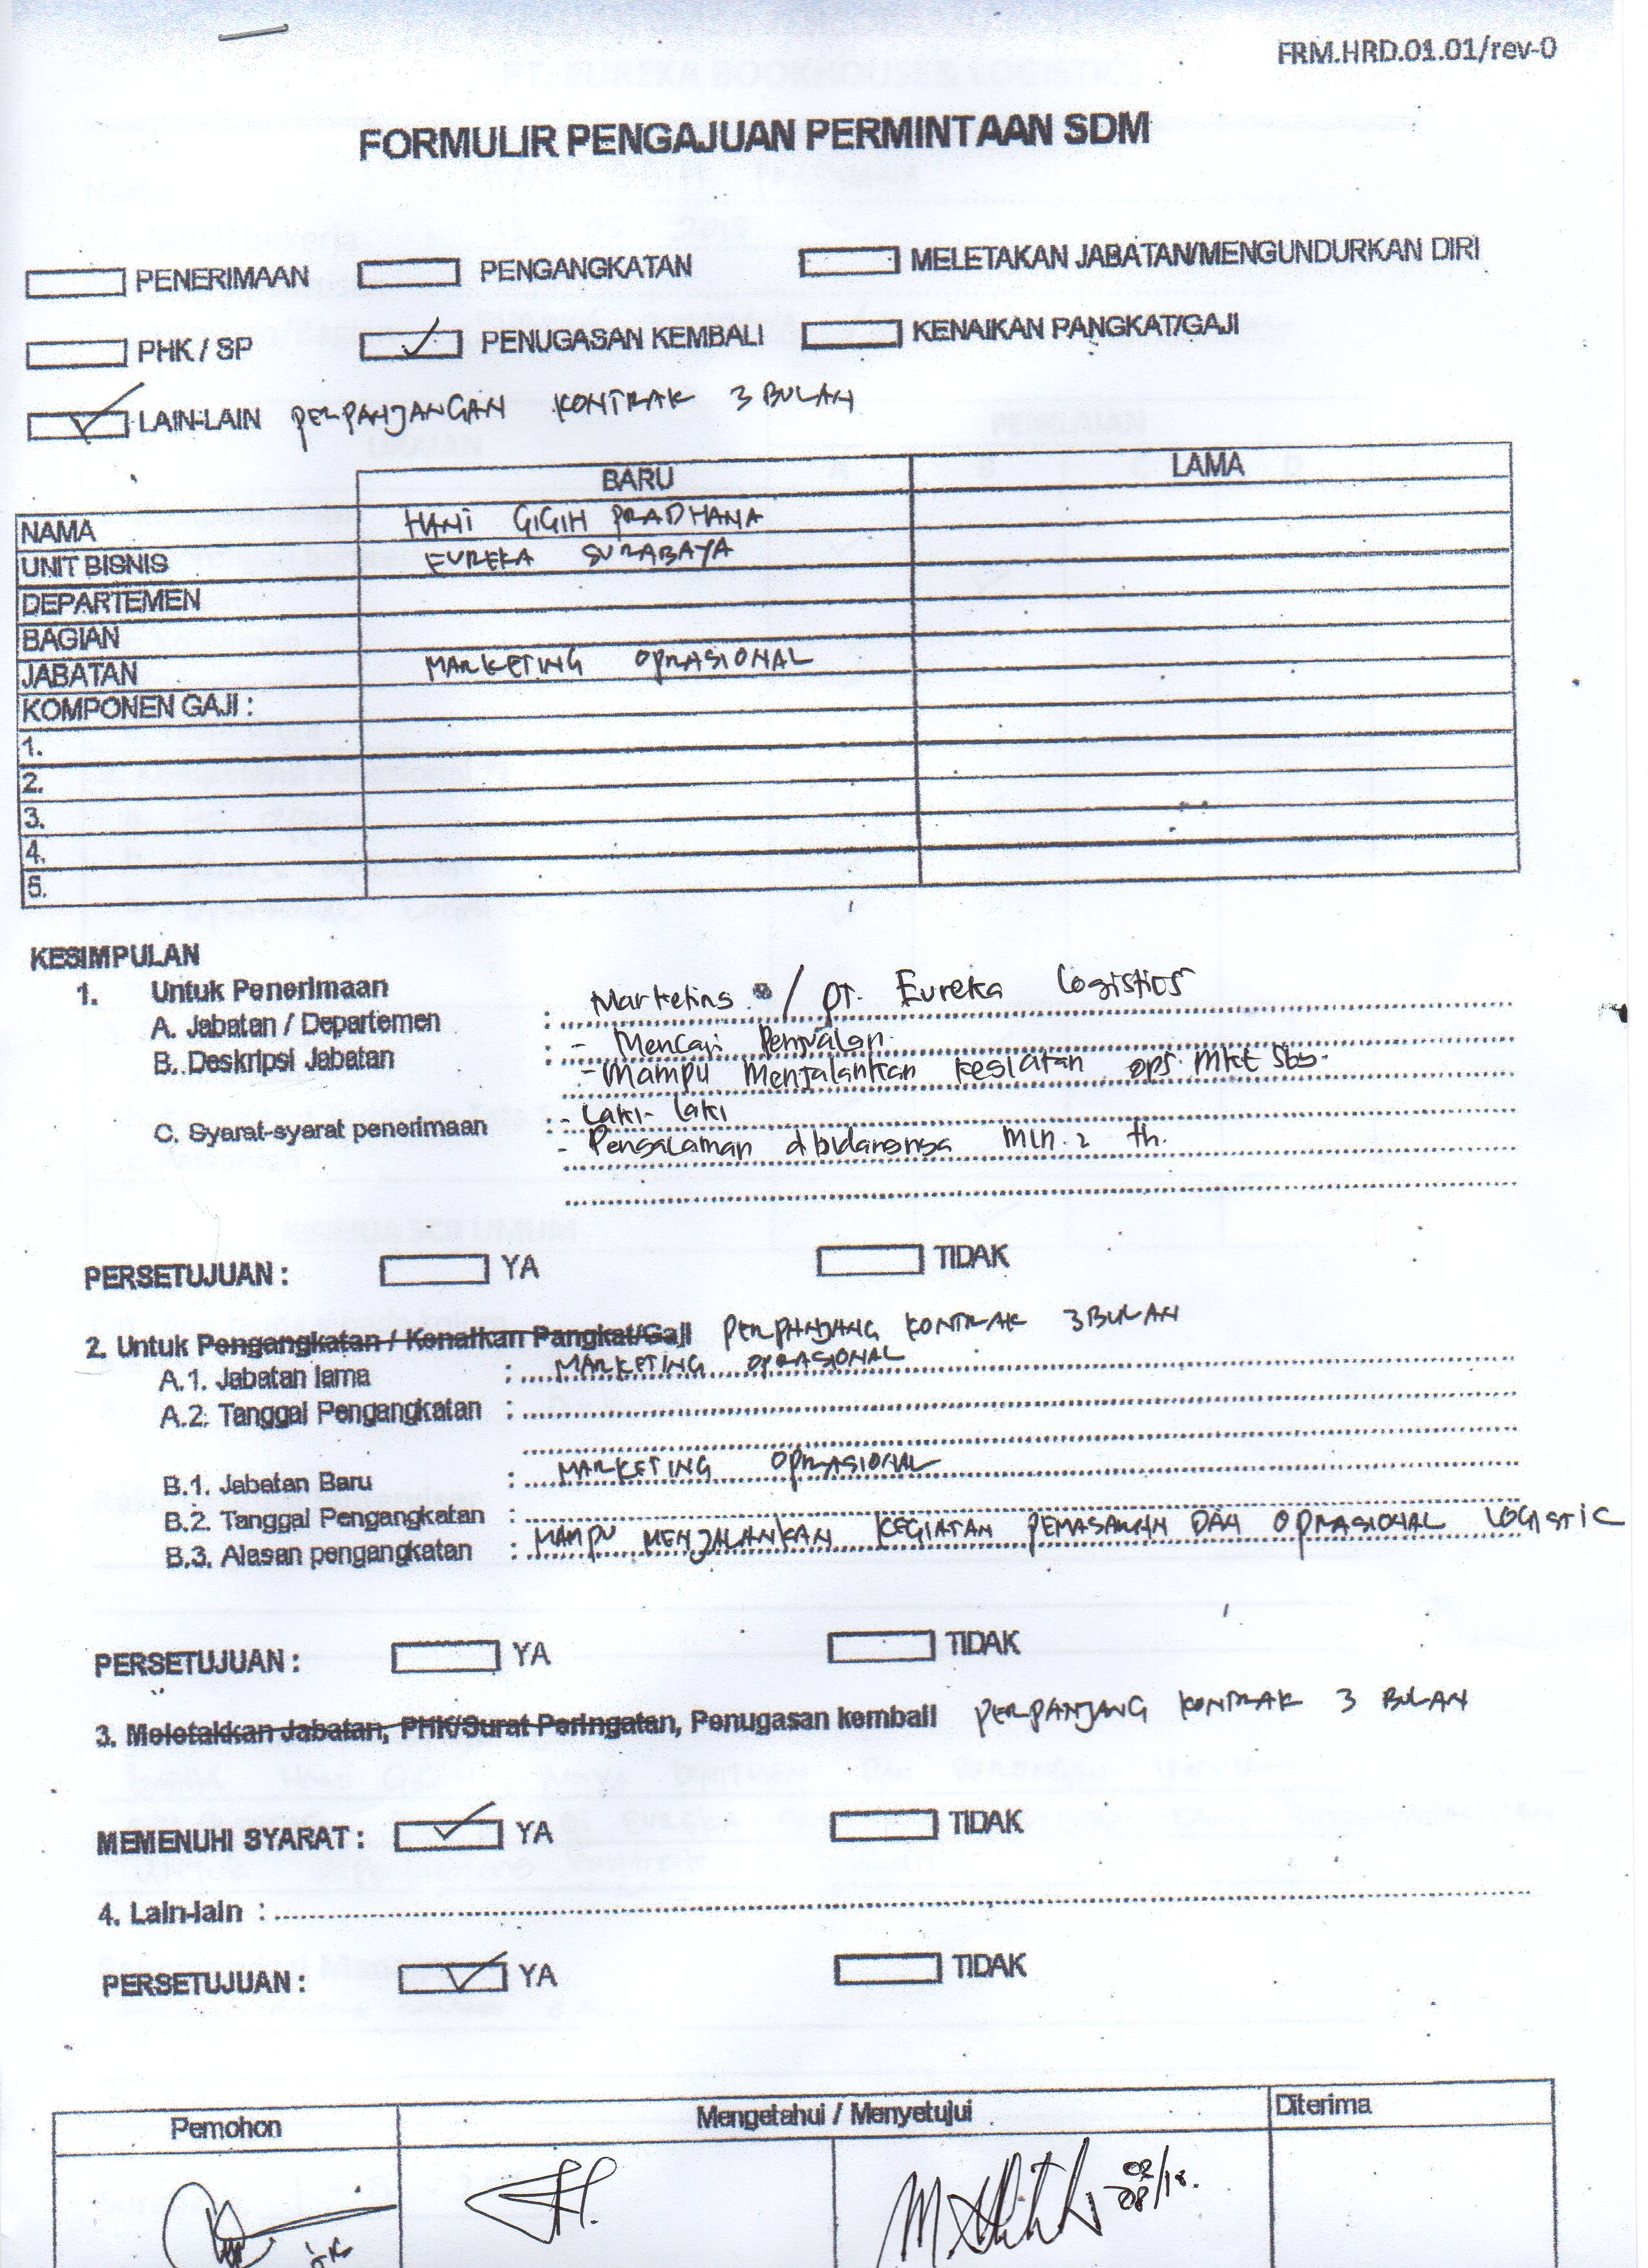 FRM.HRD.01.01/rev-0
FORMULIR PENGAJUAN PERMINTAAN SDM
PENERIMAAN PENGANGKATAN MELETAKAN JABATAN/MENGUNDURKAN DIRI
PHK / SP PENUGASAN KEMBALI KENAIKAN PANGKAT/GAJI
LAIN-LAIN PERPANJANGAN KONTRAK 3 BULAN
BARU LAMA
NAMA HANI GIGIH PRADHANA
UNIT BISNIS EUREKA SURABAYA
DEPARTEMEN
BAGIAN
JABATAN MARKETING OPRASIONAL
KOMPONEN GAJI :
1.
2.
3.
4.
5.
KESIMPULAN
1. Untuk Penerimaan
A. Jabatan / Departemen : Marketing / PT. Eureka Logistics
B. Deskripsi Jabatan : - Mencari Penjualan
- Mampu Menjalankan kegiatan ops. Mkt Sby.
C. Syarat-syarat penerimaan : - Laki-laki
- Pengalaman dbidangnya Min. 2 th.
PERSETUJUAN : YA TIDAK
2. Untuk Pengangkatan / Kenaikan Pangkat/Gaji PERPANJANG KONTRAK 3 BULAN
A.1. Jabatan lama : MARKETING OPRASIONAL
A.2. Tanggal Pengangkatan :
B.1. Jabatan Baru : MARKETING OPRASIONAL
B.2. Tanggal Pengangkatan :
B.3. Alasan pengangkatan : MAMPU MENJALANKAN KEGIATAN PEMASARAN DAN OPRASIONAL LOGISTIC
PERSETUJUAN : YA TIDAK
3. Meletakkan Jabatan, PHK/Surat Peringatan, Penugasan kembali PERPANJANG KONTRAK 3 BULAN
MEMENUHI SYARAT : YA TIDAK
4. Lain-lain :
PERSETUJUAN : YA TIDAK
Pemohon Mengetahui / Menyetujui Diterima